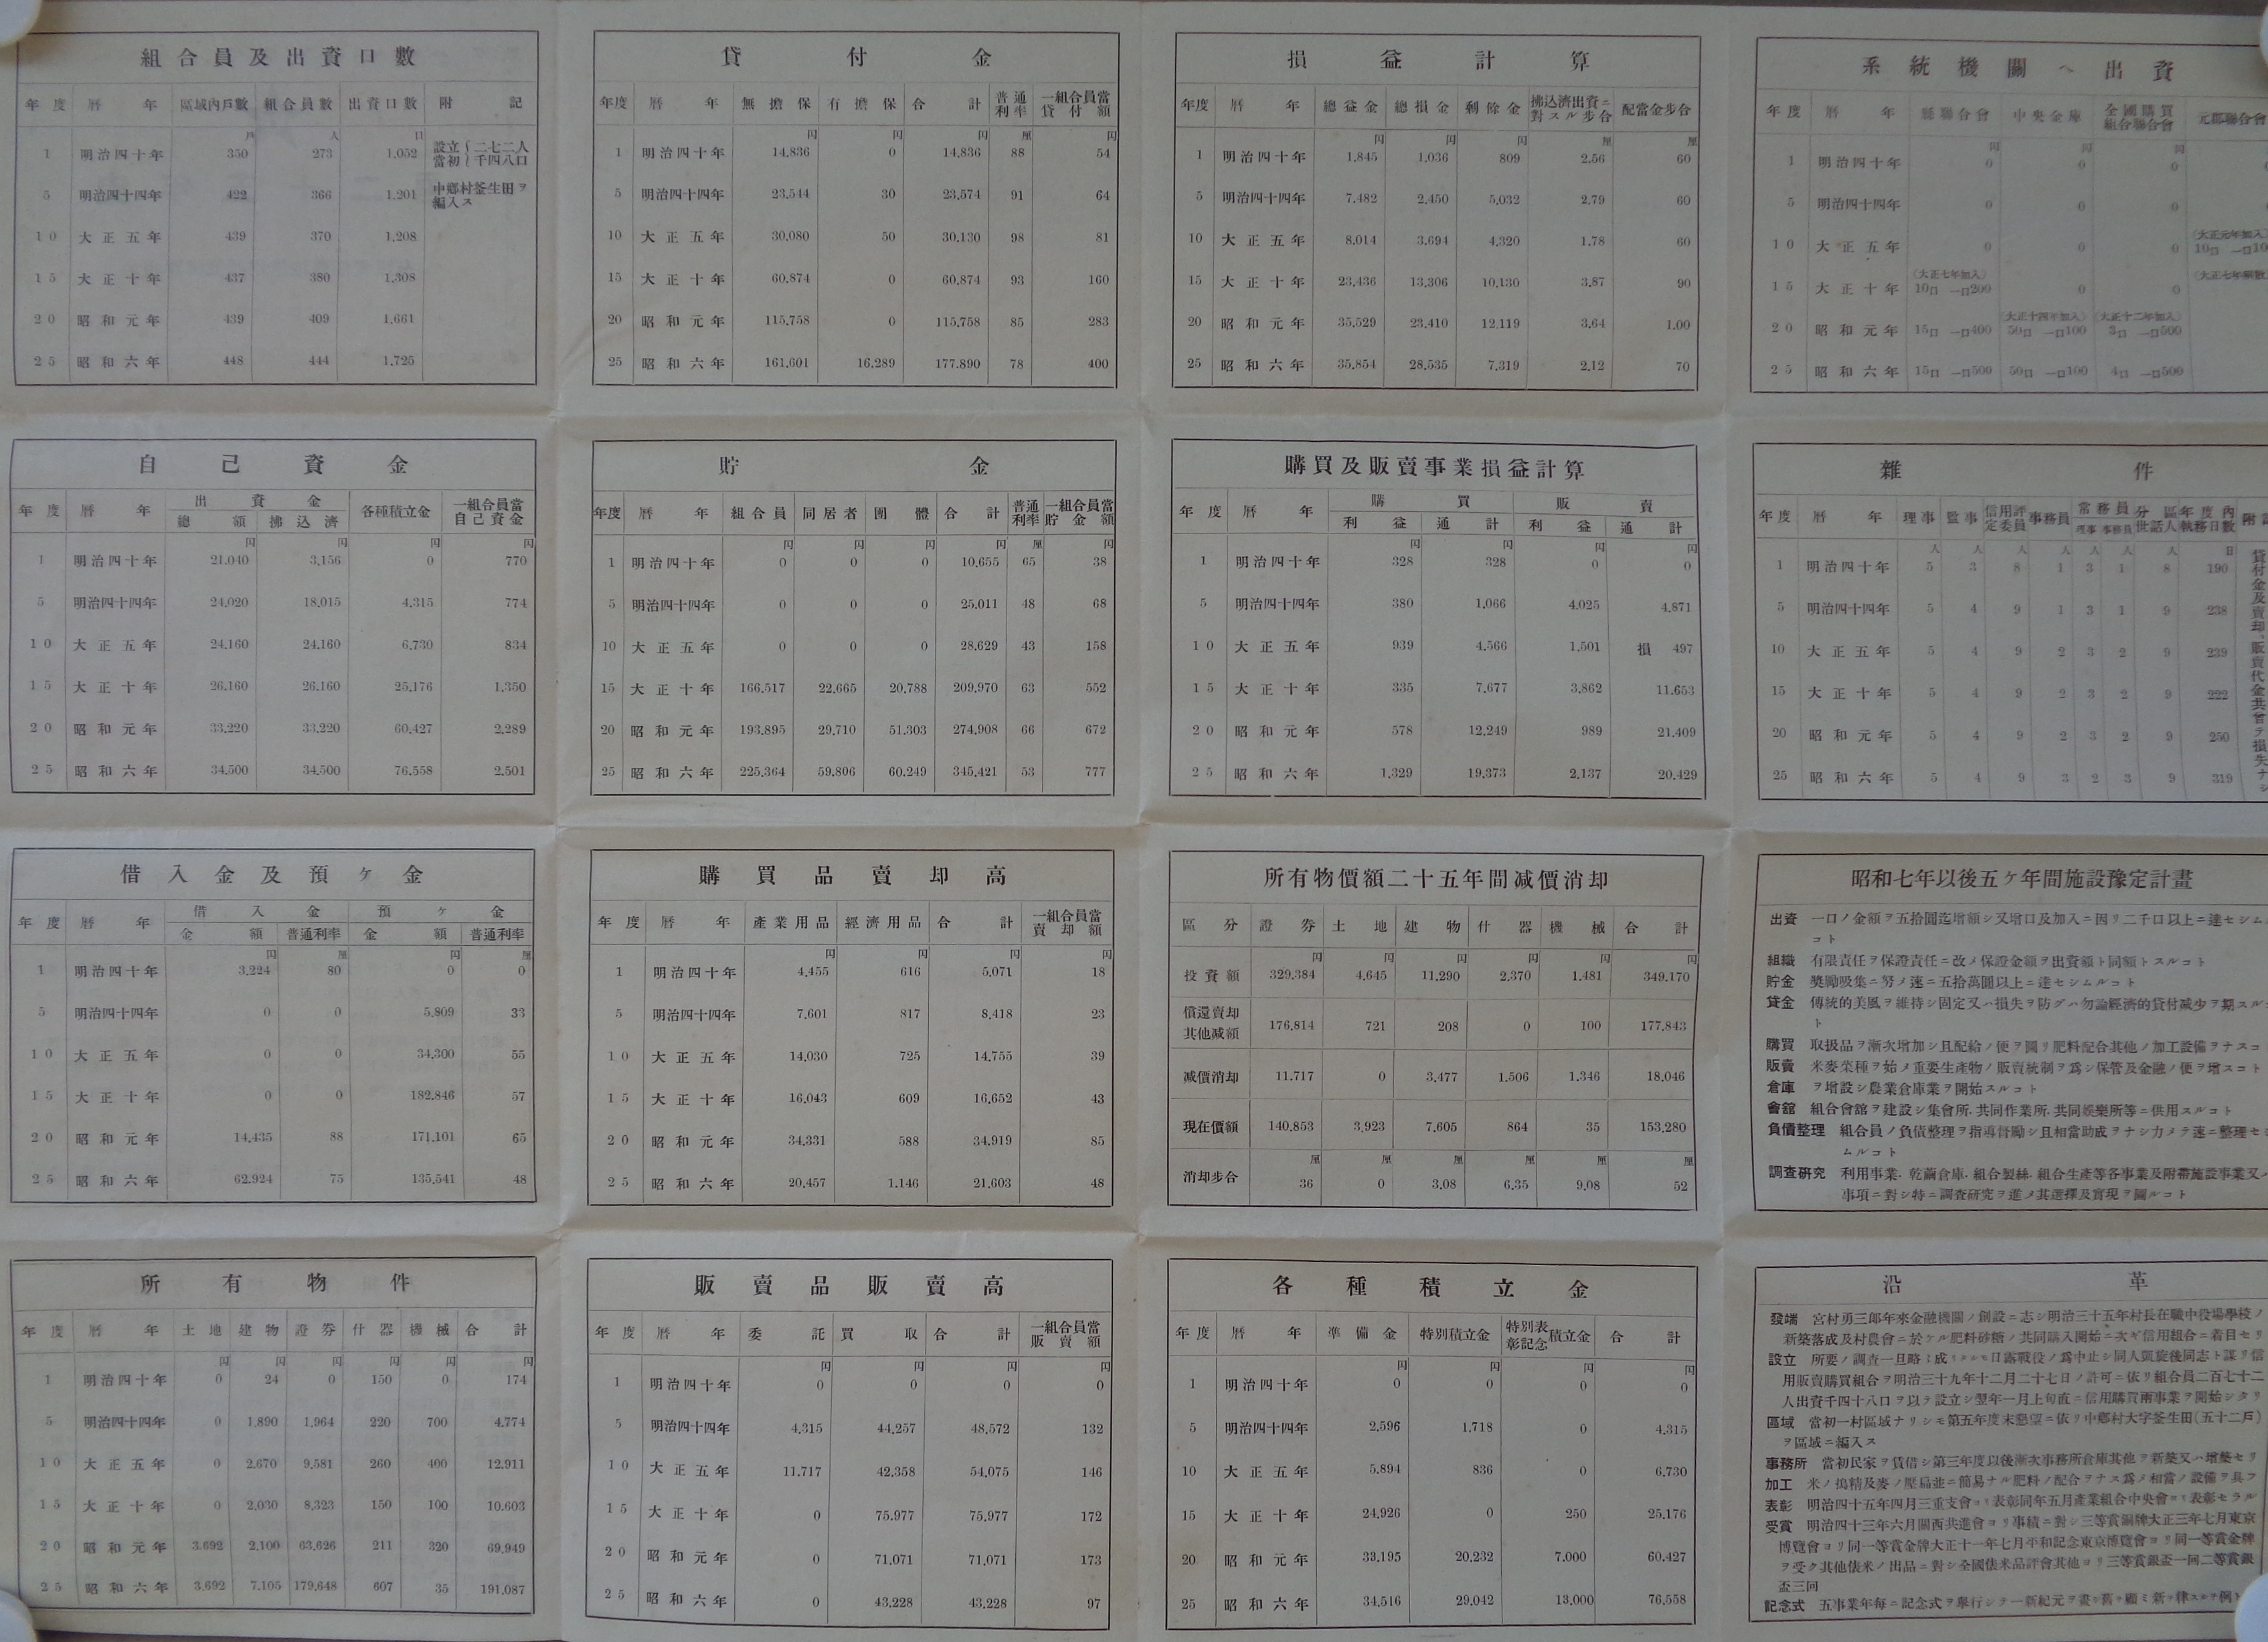 組合員及出資口數
年度 曆年 區域內戶數 組合員數 出資口數 附記
戶 人 口
1 明治四十年 350 273 1,052 設立當初{二七二人 千四八口
5 明治四十四年 422 366 1,201 中鄕村釜生田ヲ編入ス
10 大正五年 439 370 1,208
15 大正十年 437 380 1,308
20 昭和元年 439 409 1,661
25 昭和六年 448 444 1,725
貸付金
年度 曆年 無擔保 有擔保 合計 普通利率 一組合員當貸付額
円 円 円 厘 円
1 明治四十年 14,836 0 14,836 88 54
5 明治四十四年 23,544 30 23,574 91 64
10 大正五年 30,080 50 30,130 98 81
15 大正十年 60,874 0 60,874 93 160
20 昭和元年 115,758 0 115,758 85 283
25 昭和六年 161,601 16,289 177,890 78 400
損益計算
年度 曆年 總益金 總損金 剩餘金 拂込濟出資ニ對スル步合 配當金步合
円 円 円 厘 厘
1 明治四十年 1,845 1,036 809 2,56 60
5 明治四十四年 7,482 2,450 5,032 2,79 60
10 大正五年 8,014 3,694 4,320 1,78 60
15 大正十年 23,436 13,306 10,130 3,87 90
20 昭和元年 35,529 23,410 12,119 3,64 1,00
25 昭和六年 35,854 28,535 7,319 2,12 70
系統機關ヘ出資
年度 曆年 縣聯合會 中央金庫 全國購買組合聯合會 元郡聯合會
円 円 円
1 明治四十年 0 0 0
5 明治四十四年 0 0 0
(大正元年加入)
10 大正五年 0 0 0 10口 一口10
(大正七年加入)
15 大正十年 10口 一口200 0 0
(大正十四年加入) (大正十二年加入)
20 昭和元年 15口 一口400 50口 一口100 3口 一口500
25 昭和六年 15口 一口500 50口 一口100 4口 一口500
自己資金
年度 曆年 出資金 各種積立金 一組合員當自己資金
總額 拂込濟
円 円 円 円
1 明治四十年 21,040 3,156 0 770
5 明治四十四年 24,020 18,015 4,315 774
10 大正五年 24,160 24,160 6,730 834
15 大正十年 26,160 26,160 25,176 1,350
20 昭和元年 33,220 33,220 60,427 2,289
25 昭和六年 34,500 34,500 76,558 2,501
貯金
年度 曆年 組合員 同居者 團體 合計 普通利率 一組合員當貯金額
円 円 円 円 厘 円
1 明治四十年 0 0 0 10,655 65 38
5 明治四十四年 0 0 0 25,011 48 68
10 大正五年 0 0 0 28,629 43 158
15 大正十年 166,517 22,665 20,788 209,970 63 552
20 昭和元年 193,895 29,710 51,303 274,908 66 672
25 昭和六年 225,364 59,806 60,249 345,421 53 777
購買及販賣事業損益計算
年度 曆年 購買 販賣
利益 通計 利益 通計
円 円 円 円
1 明治四十年 328 328 0 0
5 明治四十四年 380 1,066 4,025 4,871
10 大正五年 939 4,566 1,501 損 497
15 大正十年 335 7,677 3,862 11,653
20 昭和元年 578 12,249 989 21,409
25 昭和六年 1,329 19,373 2,137 20,429
雜件
年度 曆年 理事 監事 信用評定委員 事務員 常務員 分區世話人 年度內執務日數
理事 事務員
人 人 人 人 人 人 人 日
1 明治四十年 5 3 8 1 3 1 8 190
5 明治四十四年 5 4 9 1 3 1 9 238
10 大正五年 5 4 9 2 3 2 9 239
15 大正十年 5 4 9 2 3 2 9 222
20 昭和元年 5 4 9 2 3 2 9 250
25 昭和六年 5 4 9 3 2 3 9 319
貸付金及賣却、販賣代金共曾テ損失ナシ
借入金及預ヶ金
年度 曆年 借入金 預ヶ金
金額 普通利率 金額 普通利率
円 厘 円 厘
1 明治四十年 3,224 80 0 0
5 明治四十四年 0 0 5,809 33
10 大正五年 0 0 34,300 55
15 大正十年 0 0 182,846 57
20 昭和元年 14,435 88 171,101 65
25 昭和六年 62,924 75 135,541 48
購買品賣却高
年度 曆年 產業用品 經濟用品 合計 一組合員當賣却額
円 円 円 円
1 明治四十年 4,455 616 5,071 18
5 明治四十四年 7,601 817 8,418 23
10 大正五年 14,030 725 14,755 39
15 大正十年 16,043 609 16,652 43
20 昭和元年 34,331 588 34,919 85
25 昭和六年 20,457 1,146 21,603 48
所有物價額二十五年間減價消却
區分 證券 土地 建物 什器 機械 合計
円 円 円 円 円 円
投資額 329,384 4,645 11,290 2,370 1,481 349,170
償還賣却其他減額 176,814 721 208 0 100 177,843
減價消却 11,717 0 3,477 1,506 1,346 18,046
現在價額 140,853 3,923 7,605 864 35 153,280
厘 厘 厘 厘 厘 厘
消却步合 36 0 3,08 6,35 9,08 52
昭和七年以後五ヶ年間施設豫定計畫
出資 一口ノ金額ヲ五拾圓迄增額シ又增口及加入ニ因リ二千口以上ニ達セシム
コト
組織 有限責任ヲ保證責任ニ改メ保證金額ヲ出資額ト同額トスルコト
貯金 獎勵吸集ニ努メ速ニ五拾萬圓以上ニ達セシムルコト
貸金 傳統的美風ヲ維持シ固定又ハ損失ヲ防グハ勿論經濟的貸付減少ヲ期スルコ
ト
購買 取扱品ヲ漸次增加シ且配給ノ便ヲ圖リ肥料配合其他ノ加工設備ヲナスコ
販賣 米麥菜種ヲ始メ重要生產物ノ販賣統制ヲ爲シ保管及金融ノ便ヲ增スコト
倉庫 ヲ增設シ農業倉庫業ヲ開始スルコト
會館 組合會館ヲ建設シ集會所、共同作業所、共同娛樂所等ニ供用スルコト
負債整理 組合員ノ負債整理ヲ指導督勵シ且相當助成ヲナシ力メテ速ニ整理セシ
ムルコト
調查硏究 利用事業、乾繭倉庫、組合製絲、組合生產等各事業及附帶施設事業又ハ
事項ニ對シ特ニ調查硏究ヲ進メ其選擇及實現ヲ圖ルコト
所有物件
年度 曆年 土地 建物 證券 什器 機械 合計
円 円 円 円 円 円
1 明治四十年 0 24 0 150 0 174
5 明治四十四年 0 1,890 1,964 220 700 4,774
10 大正五年 0 2,670 9,581 260 400 12,911
15 大正十年 0 2,030 8,323 150 100 10,603
20 昭和元年 3,692 2,100 63,626 211 320 69,949
25 昭和六年 3,692 7,105 179,648 607 35 191,087
販賣品販賣高
年度 曆年 委託 買取 合計 一組合員當販賣額
円 円 円 円
1 明治四十年 0 0 0 0
5 明治四十四年 4,315 44,257 48,572 132
10 大正五年 11,717 42,358 54,075 146
15 大正十年 0 75,977 75,977 172
20 昭和元年 0 71,071 71,071 173
25 昭和六年 0 43,228 43,228 97
各種積立金
年度 曆年 準備金 特別積立金 特別表彰記念積立金 合計
円 円 円 円
1 明治四十年 0 0 0 0
5 明治四十四年 2,596 1,718 0 4,315
10 大正五年 5,894 836 0 6,730
15 大正十年 24,926 0 250 25,176
20 昭和元年 33,195 20,232 7,000 60,427
25 昭和六年 34,516 29,042 13,000 76,558
沿革
發端 宮村勇三郎年來金融機關ノ創設ニ志シ明治三十五年村長在職中役場學校ノ
新築落成及村農會ニ於ケル肥料砂糖ノ共同購入開始ニ次ギ信用組合ニ着目セリ
設立 所要ノ調查一旦略ミ成リタルモ日露戰役ノ爲中止シ同人凱旋後同志ト謀リ信
用販賣購買組合ヲ明治三十九年十二月二十七日ノ許可ニ依リ組合員二百七十二
人出資千四十八口ヲ以テ設立シ翌年一月上旬直ニ信用購買兩事業ヲ開始シタリ
區域 當初一村區域ナリシモ第五年度末懇望ニ依リ中鄕村大字釜生田(五十二戶)
ヲ區域ニ編入ス
事務所 當初民家ヲ賃借シ第三年度以後漸次事務所倉庫其他ヲ新築又ハ增築セリ
加工 米ノ搗精及麥ノ壓扁並ニ簡易ナル肥料ノ配合ヲナス爲メ相當ノ設備ヲ具フ
表彰 明治四十五年四月三重支會ヨリ表彰同年五月產業組合中央會ヨリ表彰セラル
受賞 明治四十三年六月關西共進會ヨリ事績ニ對シ三等賞銅牌大正三年七月東京
博覽會ヨリ同一等賞金牌大正十一年七月平和記念東京博覽會ヨリ同一等賞金牌
ヲ受ク其他俵米ノ出品ニ對シ全國俵米品評會其他ヨリ三等賞銀盃一回二等賞銀
盃三回
記念式 五事業年每ニ記念式ヲ擧行シテ一新紀元ヲ畫シ舊ヲ顧ミ新ヲ律スルヲ例ト